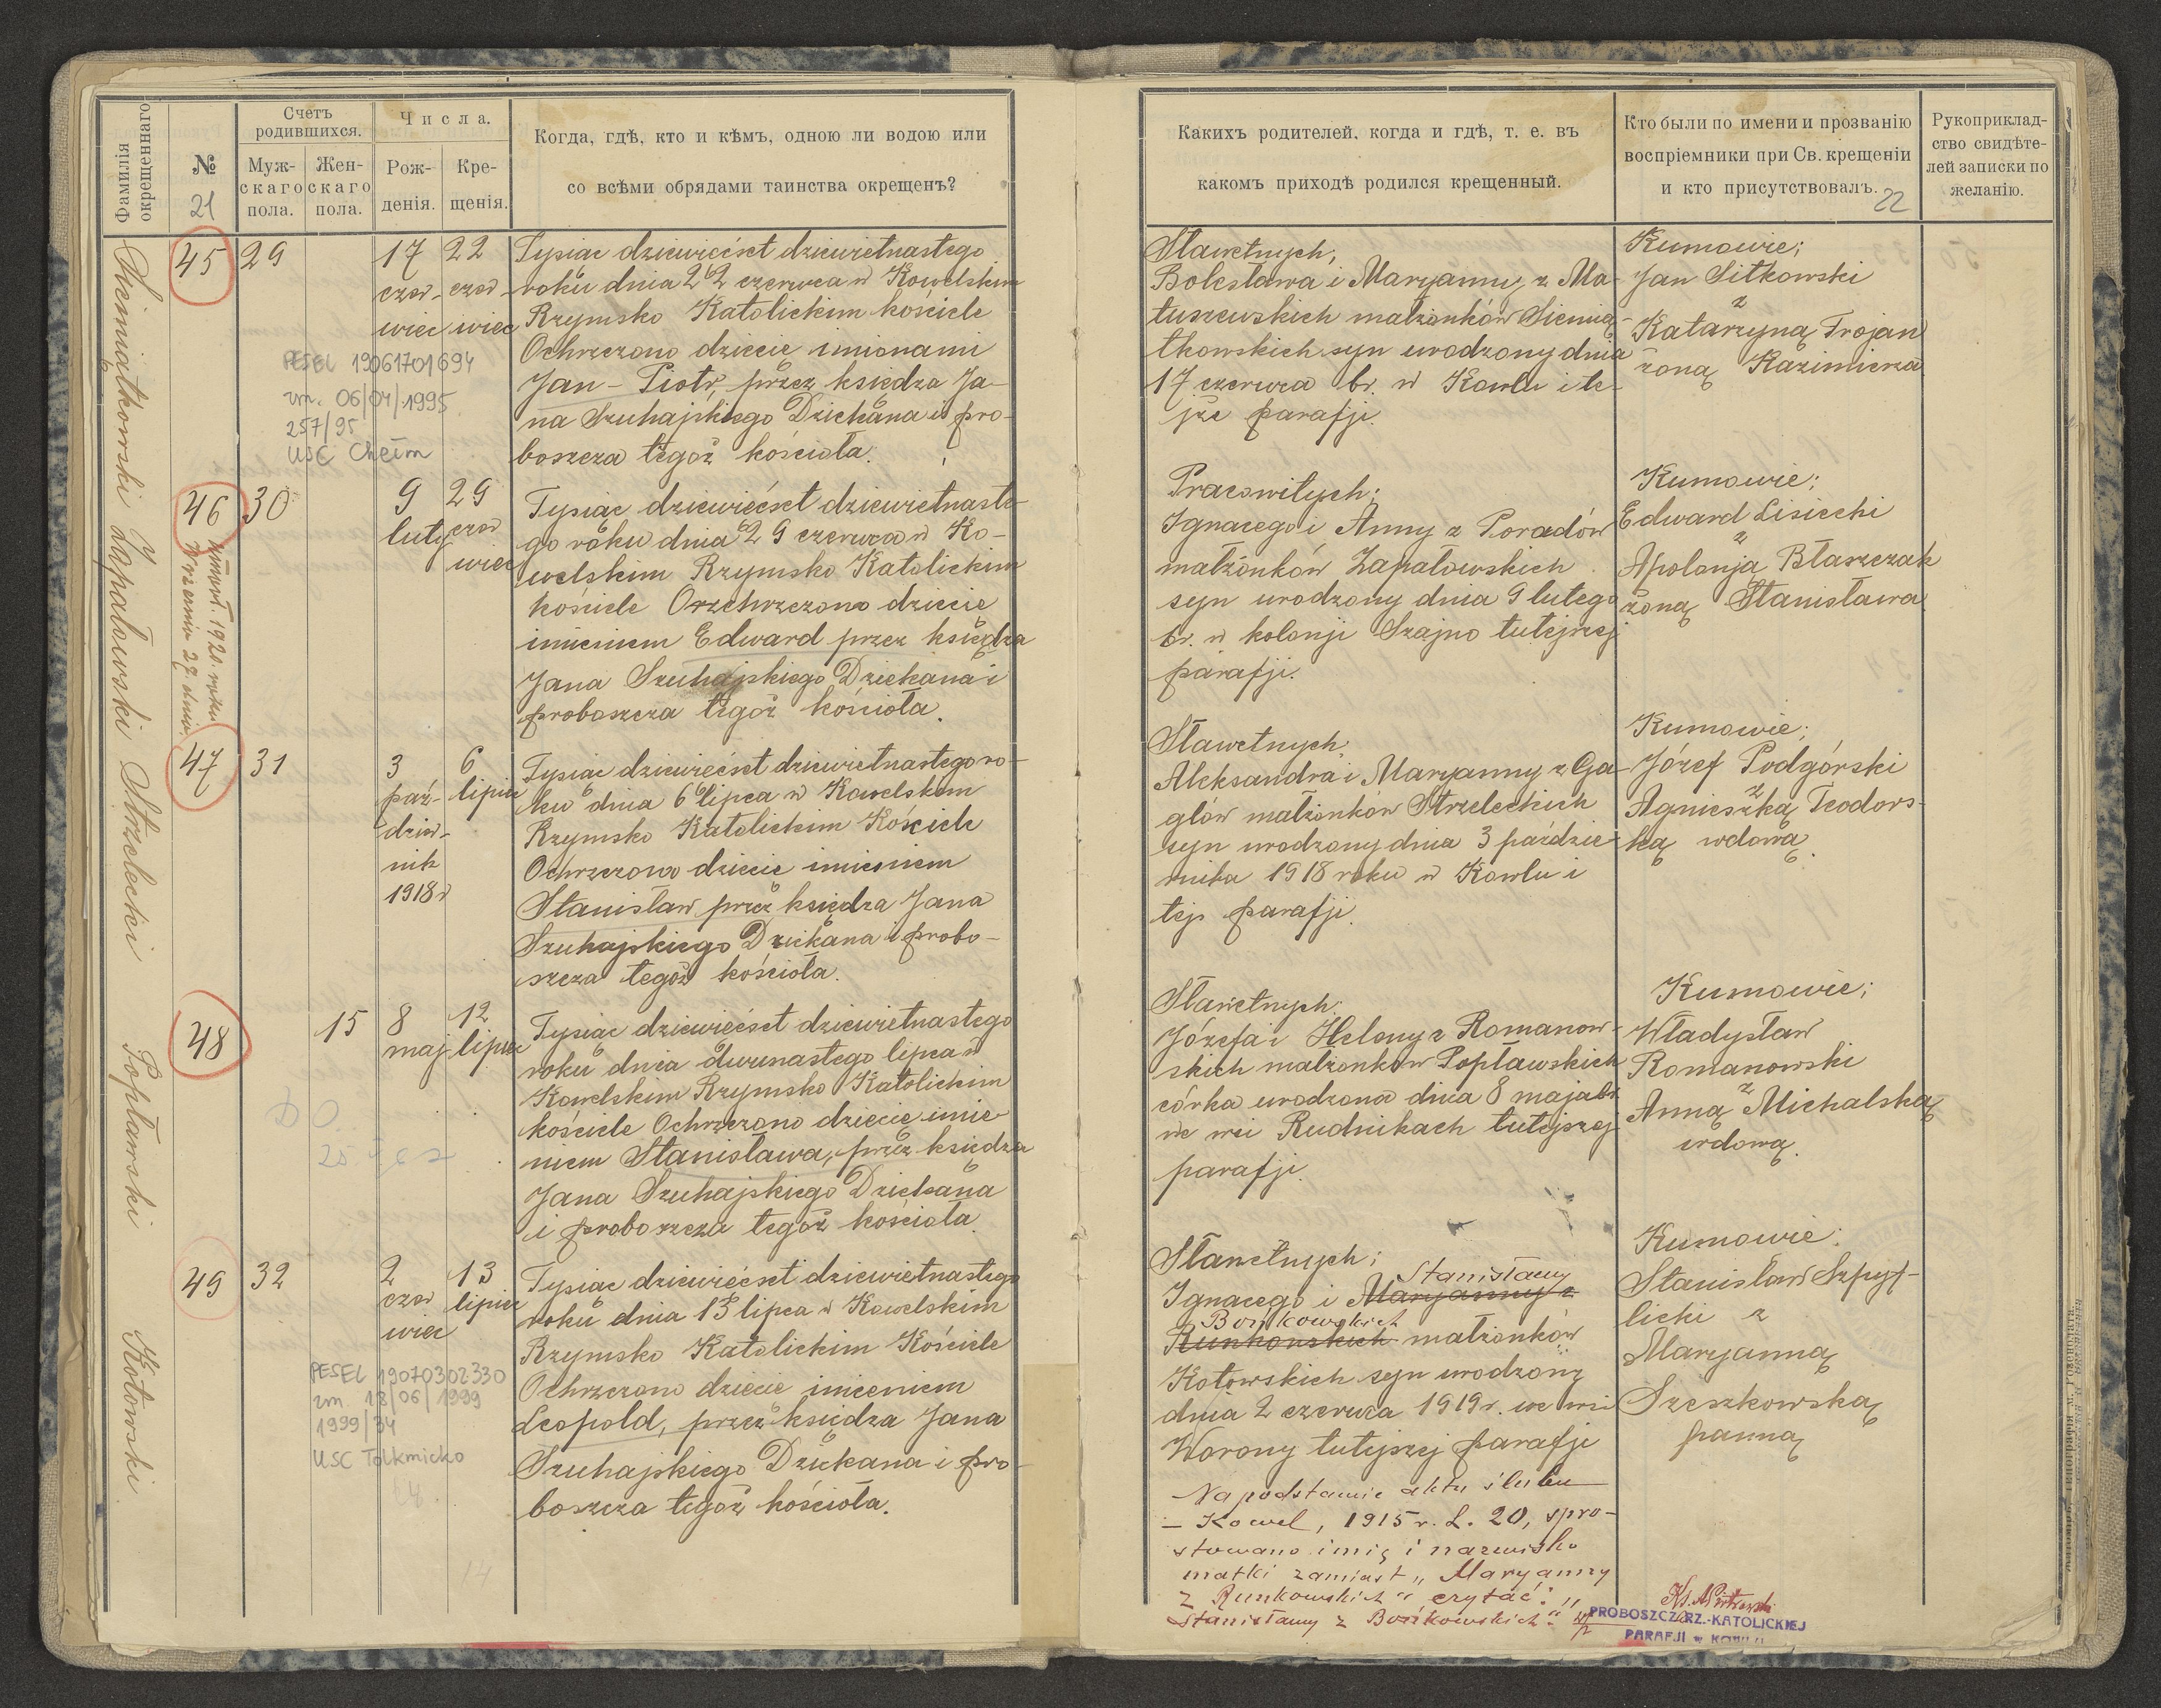 Фамилія
окрещеннаго
№
21
Счетъ
родившихся.
Муж-
скаго
пола.
Жен-
скаго
пола.
Числа.
Рож-
денія.
Кре-
щенія.
Когда, гдѣ, кто и кѣмъ, одною ли водою или
со всѣми обрядами таинства окрещенъ?
Какихъ родителей, когда и гдѣ, т. е. въ
какомъ приходѣ родился крещенный.
Кто были по имени и прозванію
воспріемники при Св. крещеніи
и кто присутствовалъ.
22
Рукоприклад-
ство свидѣте-
лей записки по
желанію.
Siemiątkowski
45
29
17
czer-
wiec
22
czer-
wiec
PESEL 19061701694
zm. 06/04/1995
257/95
USC Chełm
Tysiąc dziewięćset dziewiętnastego
roku dnia 22 czerwca w Kowelskim
Rzymsko Katolickim kościele
Ochrzczono dziecię imionami
Jan - Piotr, przez księdza Ja-
na Szuhajskiego Dziekana i pro-
boszcza tegoż kościoła.
Sławetnych;
Bolesława i Maryanny z Ma-
tuszewskich małżonków Siemią-
tkowskich syn urodzony dnia
17 czerwca br. w Kowlu i te-
jże parafji.
Kumowie;
Jan Sitkowski
z
Katarzyną Trojan
żoną Kazimierza
Zapałowski
46
umarł. 1920. roku
Września 27. dnia.
30
9
luty
29
czer
wiec
Tysiąc dziewięćset dziewiętnaste-
go roku dnia 29 czerwca w Ko-
welskim Rzymsko Katolickim
kościele Orzchrzczono dziecię
imieniem Edward przez księdza
Jana Szuhajskiego Dziekana i
proboszcza tegoż kościoła.
Pracowitych;
Ignacego i Anny z Poradów
małżonków Zapałowskich
syn urodzony dnia 9 lutego
br. w kolonji Szajno tutejszej
parafji.
Kumowie;
Edward Lisiecki
z
Apolonją Błaszczak
żoną Stanisława
Strzelecki
47
31
3
paź-
dzier-
nik
1918 r
6
lipiec
Tysiąc dziewięćset dziewiętnastego ro-
ku dnia 6 lipca w Kowelskim
Rzymsko Katolickim Kościele
Ochrzczono dziecię imieniem
Stanisław przez księdza Jana
Szuhajskiego Dziekana i probo-
szcza tegoż kościoła.
Sławetnych;
Aleksandra i Maryanny z Ga-
głów małżonków Strzeleckich
syn urodzony dnia 3 paździe-
rnika 1918 roku w Kowlu i
tejż parafji.
Kumowie;
Józef Podgórski
z
Agnieszką Teodors-
ką wdową.
Popławski
48
15
8
maj
12
lipiec
Tysiąc dziewięćset dziewiętnastego
roku dnia dwunastego lipca w
Kowelskim Rzymsko Katolickim
kościele Ochrzczono dziecię imie-
niem Stanisława, przez księdza
Jana Szuhajskiego Dziekana
i proboszcza tegoż kościoła
Sławetnych;
Józefa i Heleny z Romanow-
skich małżonków Popławskich
córka urodzona dnia 8 maja br
we wsi Rudnikach tutejszej
parafji.
Kumowie;
Władysław
Romanowski
z
Anną Michalską
wdową.
Kotowski
49
32
2
czer
wiec
13
lipiec
PESEL 19070302330
zm. 18/06/1999
1999/34
USC Tolkmicko
14
Tysiąc dziewięćset dziewiętnastego
roku dnia 13 lipca w Kowelskim
Rzymsko Katolickim Kościele
Ochrzczono dziecię imieniem
Leopold, przez księdza Jana
Szuhajskiego Dziekana i pro-
boszcza tegoż kościoła.
Sławetnych;
Stanisławy
Ignacego i Maryanny z
Bońkowskich
Runkowskich małżonków
Kotowskich syn urodzony
dnia 2 czerwca 1919 r. we wsi
Worony tutejszej parafji
Na podstawie aktu ślubu
- Kowel, 1915 r. L. 20, spro-
stowano imię i nazwisko
matki zamiast „Maryanny
z Runkowskich" czytać: „
Stanisławy z Bońkowskich."
Kumowie:
Stanisław Szpyt-
licki z
Maryanną
Szeszkowską
panną
PROBOSZCZ RZ.-KATOLICKIEJ
PARAFJI w KOWLU